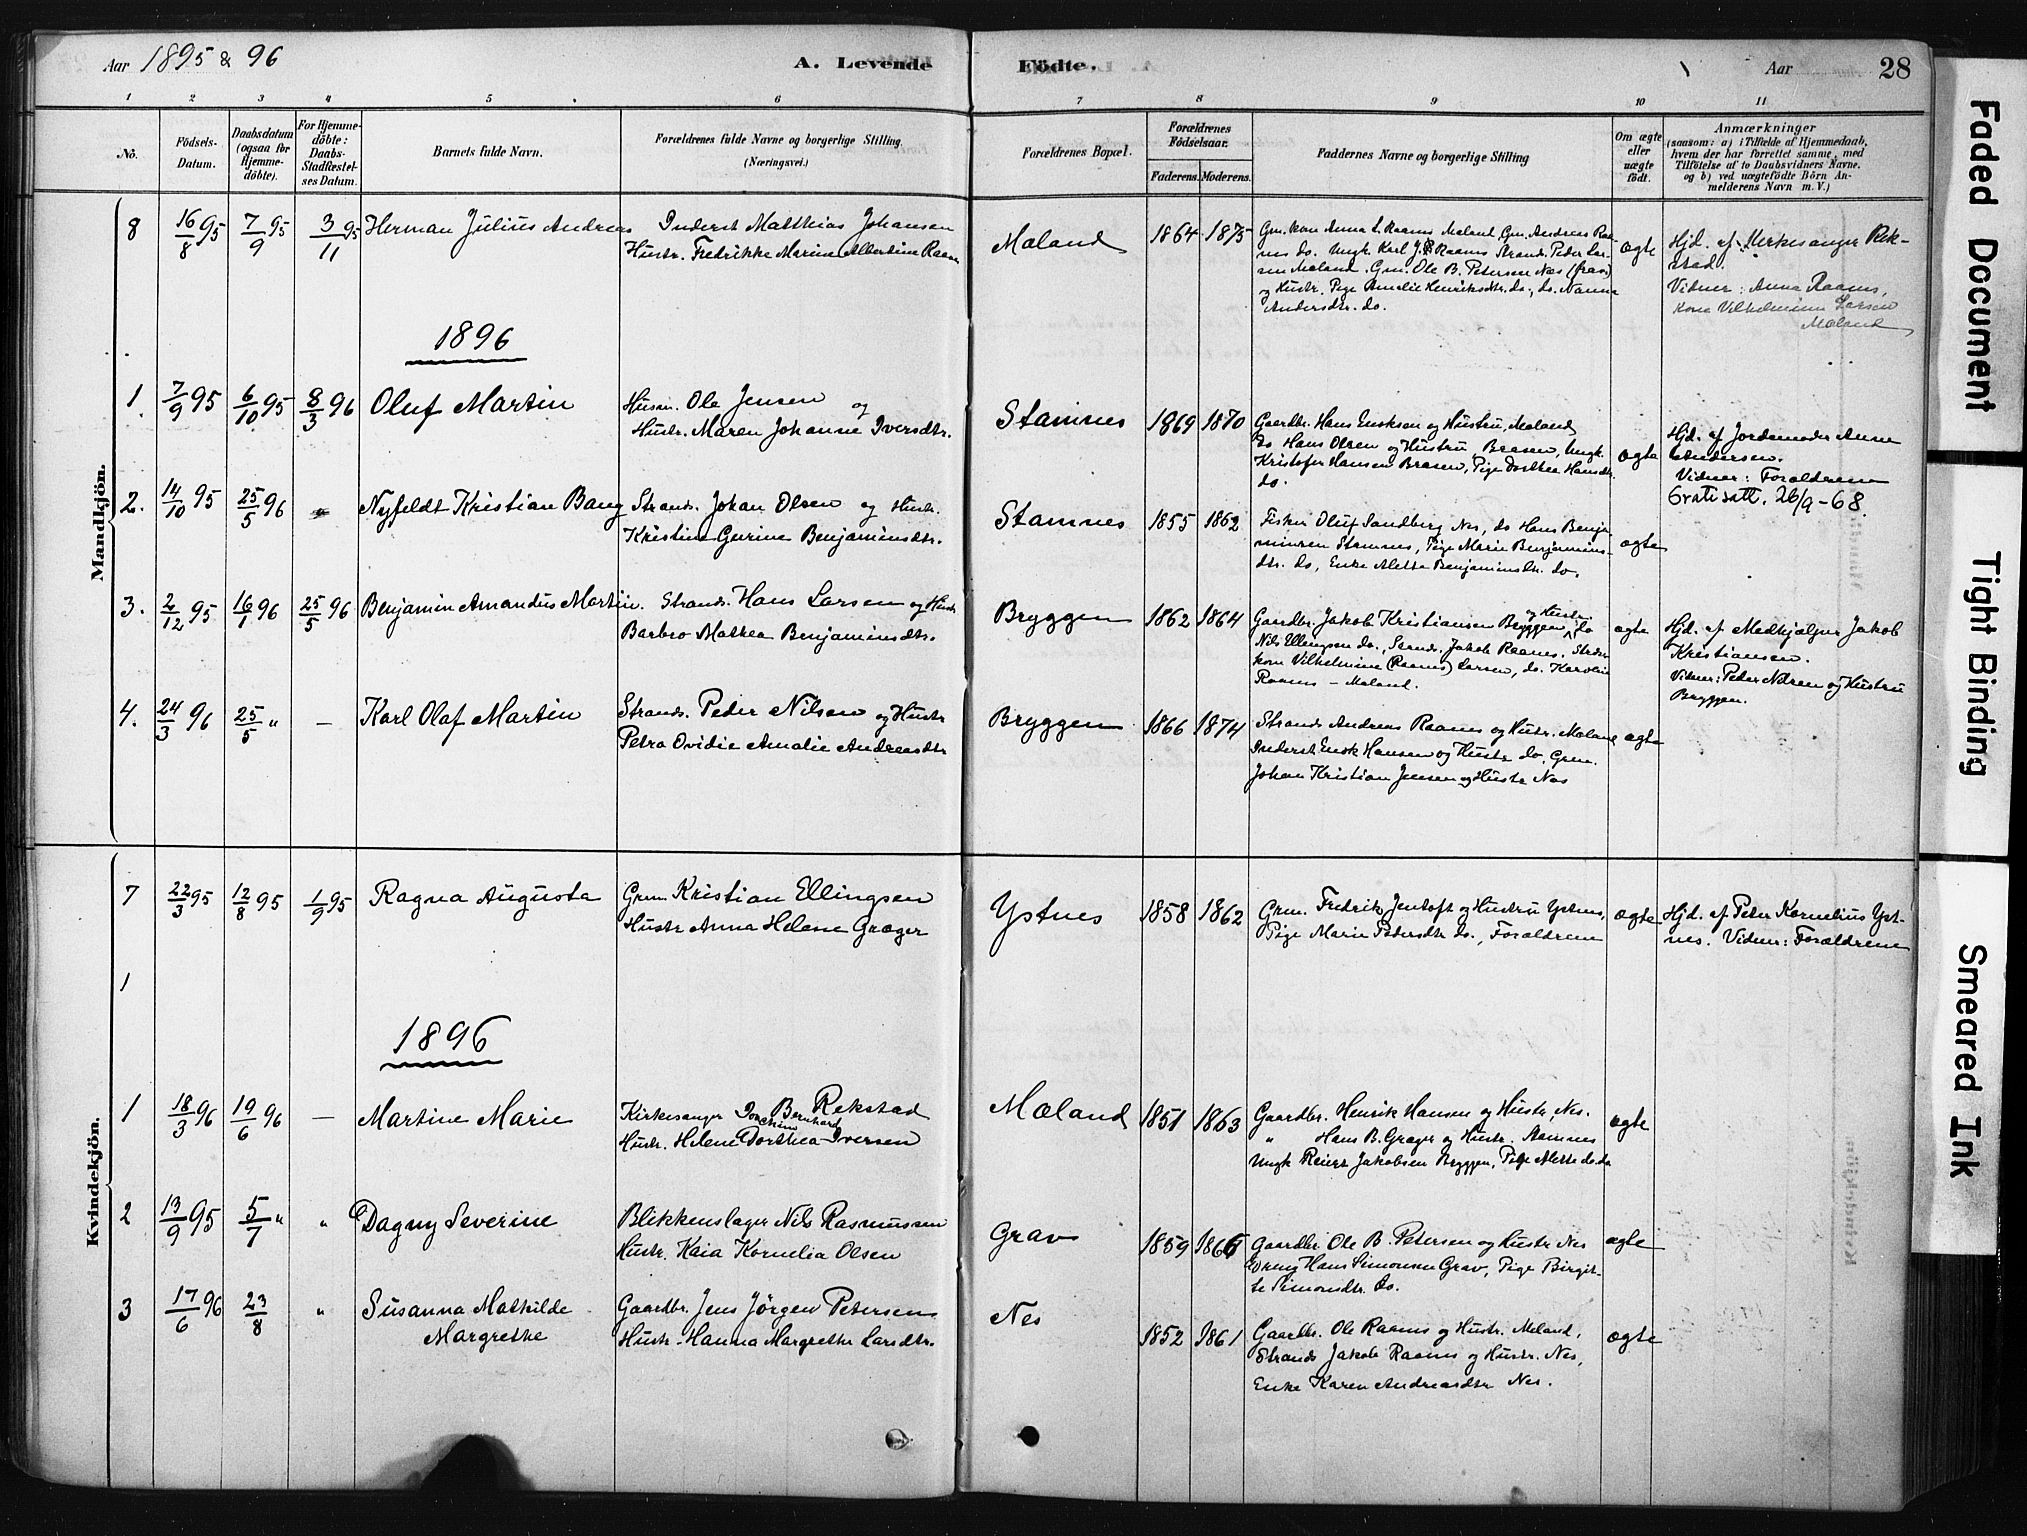 Aar 1895 & 96
A. Levende Födte.
Aar
28
1 2 3 4 5 6 7 8 9 10 11
No.
Födsels-
Datum.
Daabsdatum
(ogsaa for
Hjemme-
döbte).
For Hjemme-
döbte:
Daabs-
Stadfæstel-
ses Datum.
Barnets fulde Navn.
Forældrenes fulde Navne og borgerlige Stilling
(Næringsvei.)
Forældrenes Bopæl.
Forældrenes
Födselsaar.
Faderens. Moderens.
Faddernes Navne og borgerlige Stilling
Om ægte
eller
uægte
födt.
Anmærkninger
(saasom: a) i Tilfælde af Hjemmedaab,
hvem der har forrettet samme, med
Tilföielse af to Daabsvidners Navne.
og b) ved uægtefödte Börn An-
melderens Navn m. V.)
Mandkjön.
8 16/8 95 7/9 95 3/11 95 Herman Julius Andreas
Inderst Matthias Johansen
Hustr. Fredrikke Marine Albertine Raam
Maland 1864 1875
Gm. kone Anna L. Raams Meland, Gm. Andreas Raa-
ms do. Ungk. Karl J. Raams Strand. Peder Lar-
sen Meland. Gm. Ole B. Petersen Nes (Grav)
og Hustr. Pige Amalie Henriksdtr. do., do. Nanna
Andersdtr. do.
ægte
Hjd. af Kirkesanger Rek-
stad.
Vidner: Anna Raams,
Kone Vilhelmine Larsen
Mæland
1896
1. 7/9 95 6/10 95 8/3 96 Oluf Martin
Husm. Ole Jensen og
Hustr. Maren Johanne Iversdtr.
Stamnes 1869 1870
Gaardbr. Hans Enoksen og Hustru, Maland
do Hans Olsen og Hustru Brasen, Ungk.
Kristofer Hansen Brasen, Pige Dorthea Hansdtr
do.
ægte
Hjd. af Jordemoder Anne
Andersen.
Vidner: Forældrene
Gratisatt. 26/9-68.
2. 14/10 95 25/5 96 Nyfeldt Kristian Bang
Strands. Johan Olsen og Hustr.
Kristine Gurine Benjaminsdtr.
Stamnes 1855 1862
Fisker Oluf Sandberg Nes, do Hans Benja-
minsen Stamnes, Pige Marie Benjamins-
dtr. do, Enke Mette Benjaminsdtr. do.
ægte
3. 2/12 95 16/1 96 25/5 96 Benjamin Amandus Martin.
Strands. Hans Larsen og Hustr
Barbro Mathea Benjaminsdtr.
Bryggen 1862 1864
Gaardbr. Jakob Kristiansen Bryggen og Hustr, do
Nils Ellingsen do., Strands. Jakob Raams, Strands
kone Vilhelmine (Raams) Larsen, do. Karoline
Raams - Maland.
ægte
Hjd. af Medhjælper Jakob
Kristiansen.
Vidner: Peder Nilsen og Hustru
Bryggen.
4. 24/3 96 25/5 " — Karl Olaf Martin
Strands. Peder Nilsen og Hustr
Petra Ovidie Amalie Andreasdtr
Bryggen 1866 1874
Strands Andreas Raams og Hustr. Maland
Inderst Enok Hansen og Hustr do. Grm.
Johan Kristian Jensen og Hustr Nes
ægte
Kvindekjön.
7 22/3 95 12/8 95 1/9 95 Ragna Augusta
Grm. Kristian Ellingsen
Hustr Anna Helene Græger
Ystnes 1858 1862
Grm. Fredrik Jentoft og Hustru Ystnes,
Pige Marie Pedersdtr do., Forældrene
ægte
Hjd. af Peter Kornelius Yst-
nes. Vidner: Forældrene
1
1896
1 18/3 96 19/6 96 — Martine Marie
Kirkesanger Joachim Bernhard Rekstad
Hustr. Helene Dorthea Iversen
Mæland 1851 1863
Gaardbr. Henrik Hansen og Hustr, Nes.
" Hans B. Græger og Hustr. Aamnes
Ungk Reiert Jakobsen Bryggen, Pige Mette do. do
ægte
2 13/9 95 5/7 " " Dagny Severine
Blikkenslager Nils Rasmussen
Hustr. Kaia Kornelia Olsen
Grav 1859 1866
Gaardbr. Ole B. Petersen og Hustr Nes
Dreng Hans Simonsen Grav, Pige Birgit-
te Simonsdtr. do.
ægte
3 17/6 96 23/8 " Susanna Mathilde
Margrethe
Gaardbr. Jens Jörgen Petersen
Hustr. Hanna Margrethe Larsdtr.
Nes 1852 1861
Gaardbr. Ole Raams og Hustr. Meland,
Strands Jakob Raams og Hustr. Nes,
Enke Karen Andreasdtr Nes.
ægte
Faded Document
Tight Binding
Smeared Ink